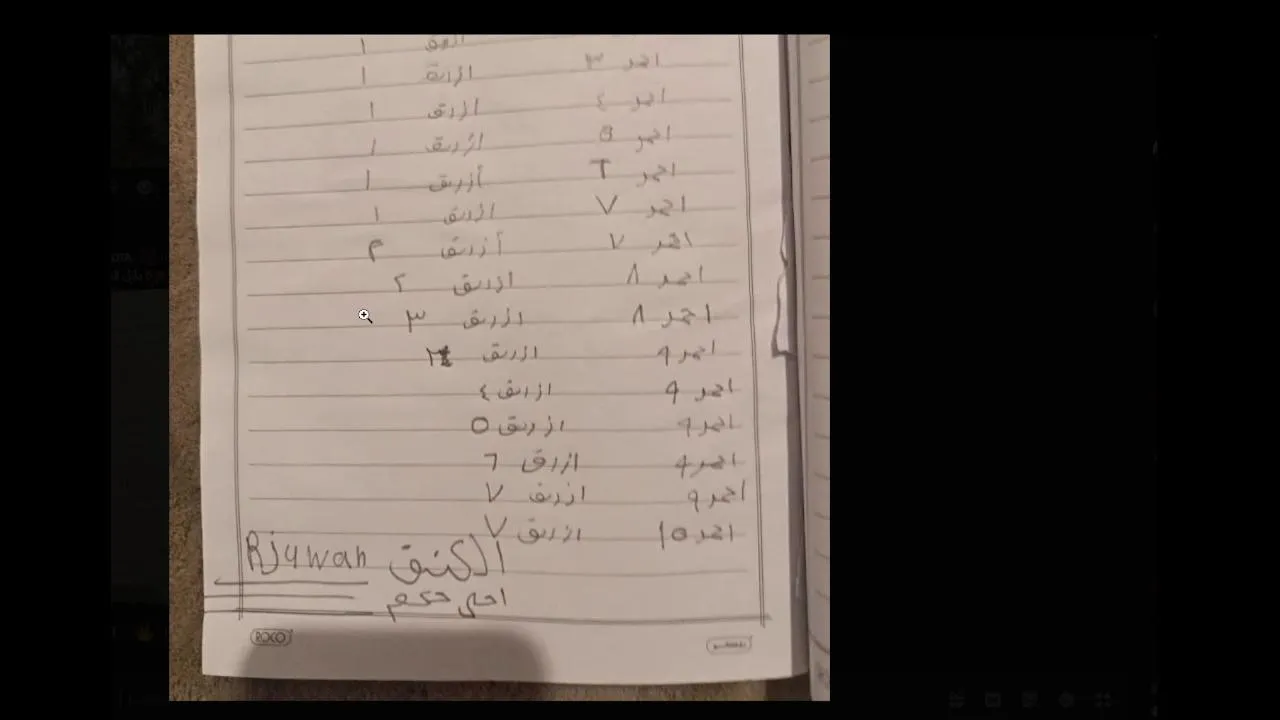 ازرق ١
احمر ٣ ازرق ١
احمر ٤ ازرق ١
احمر 5 ازرق ١
احمر ٦ ازرق ١
احمر ٧ ازرق ١
احمر ٧ أزرق ٢
احمر ٨ ازرق ٢
احمر ٨ ازرق ٣
احمر ٩ ازرق
احمر ٩ ازرق ٤
احمر ٩ ازرق ٥
احمر ٩ ازرق ٦
احمر ٩ ازرق ٧
احمر ١٥ ازرق ٧
الكنق Rjuwan
احلى حكم
ROCO